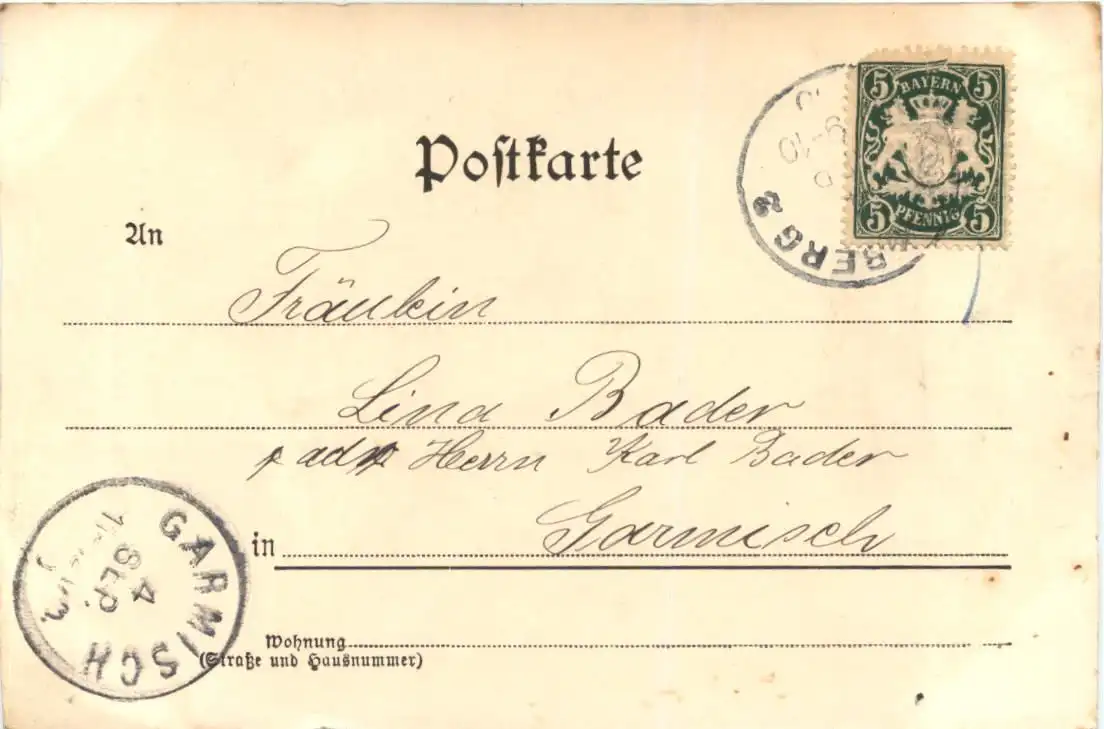 5 BAYERN 5
5 PFENNIG 5
9-10
BERG 2
Postkarte
An
Fräulein
Lina Bader
adr Herrn Karl Bader
in Garmisch
GARMISCH
4 SEP.
Wohnung
(Straße und Hausnummer)